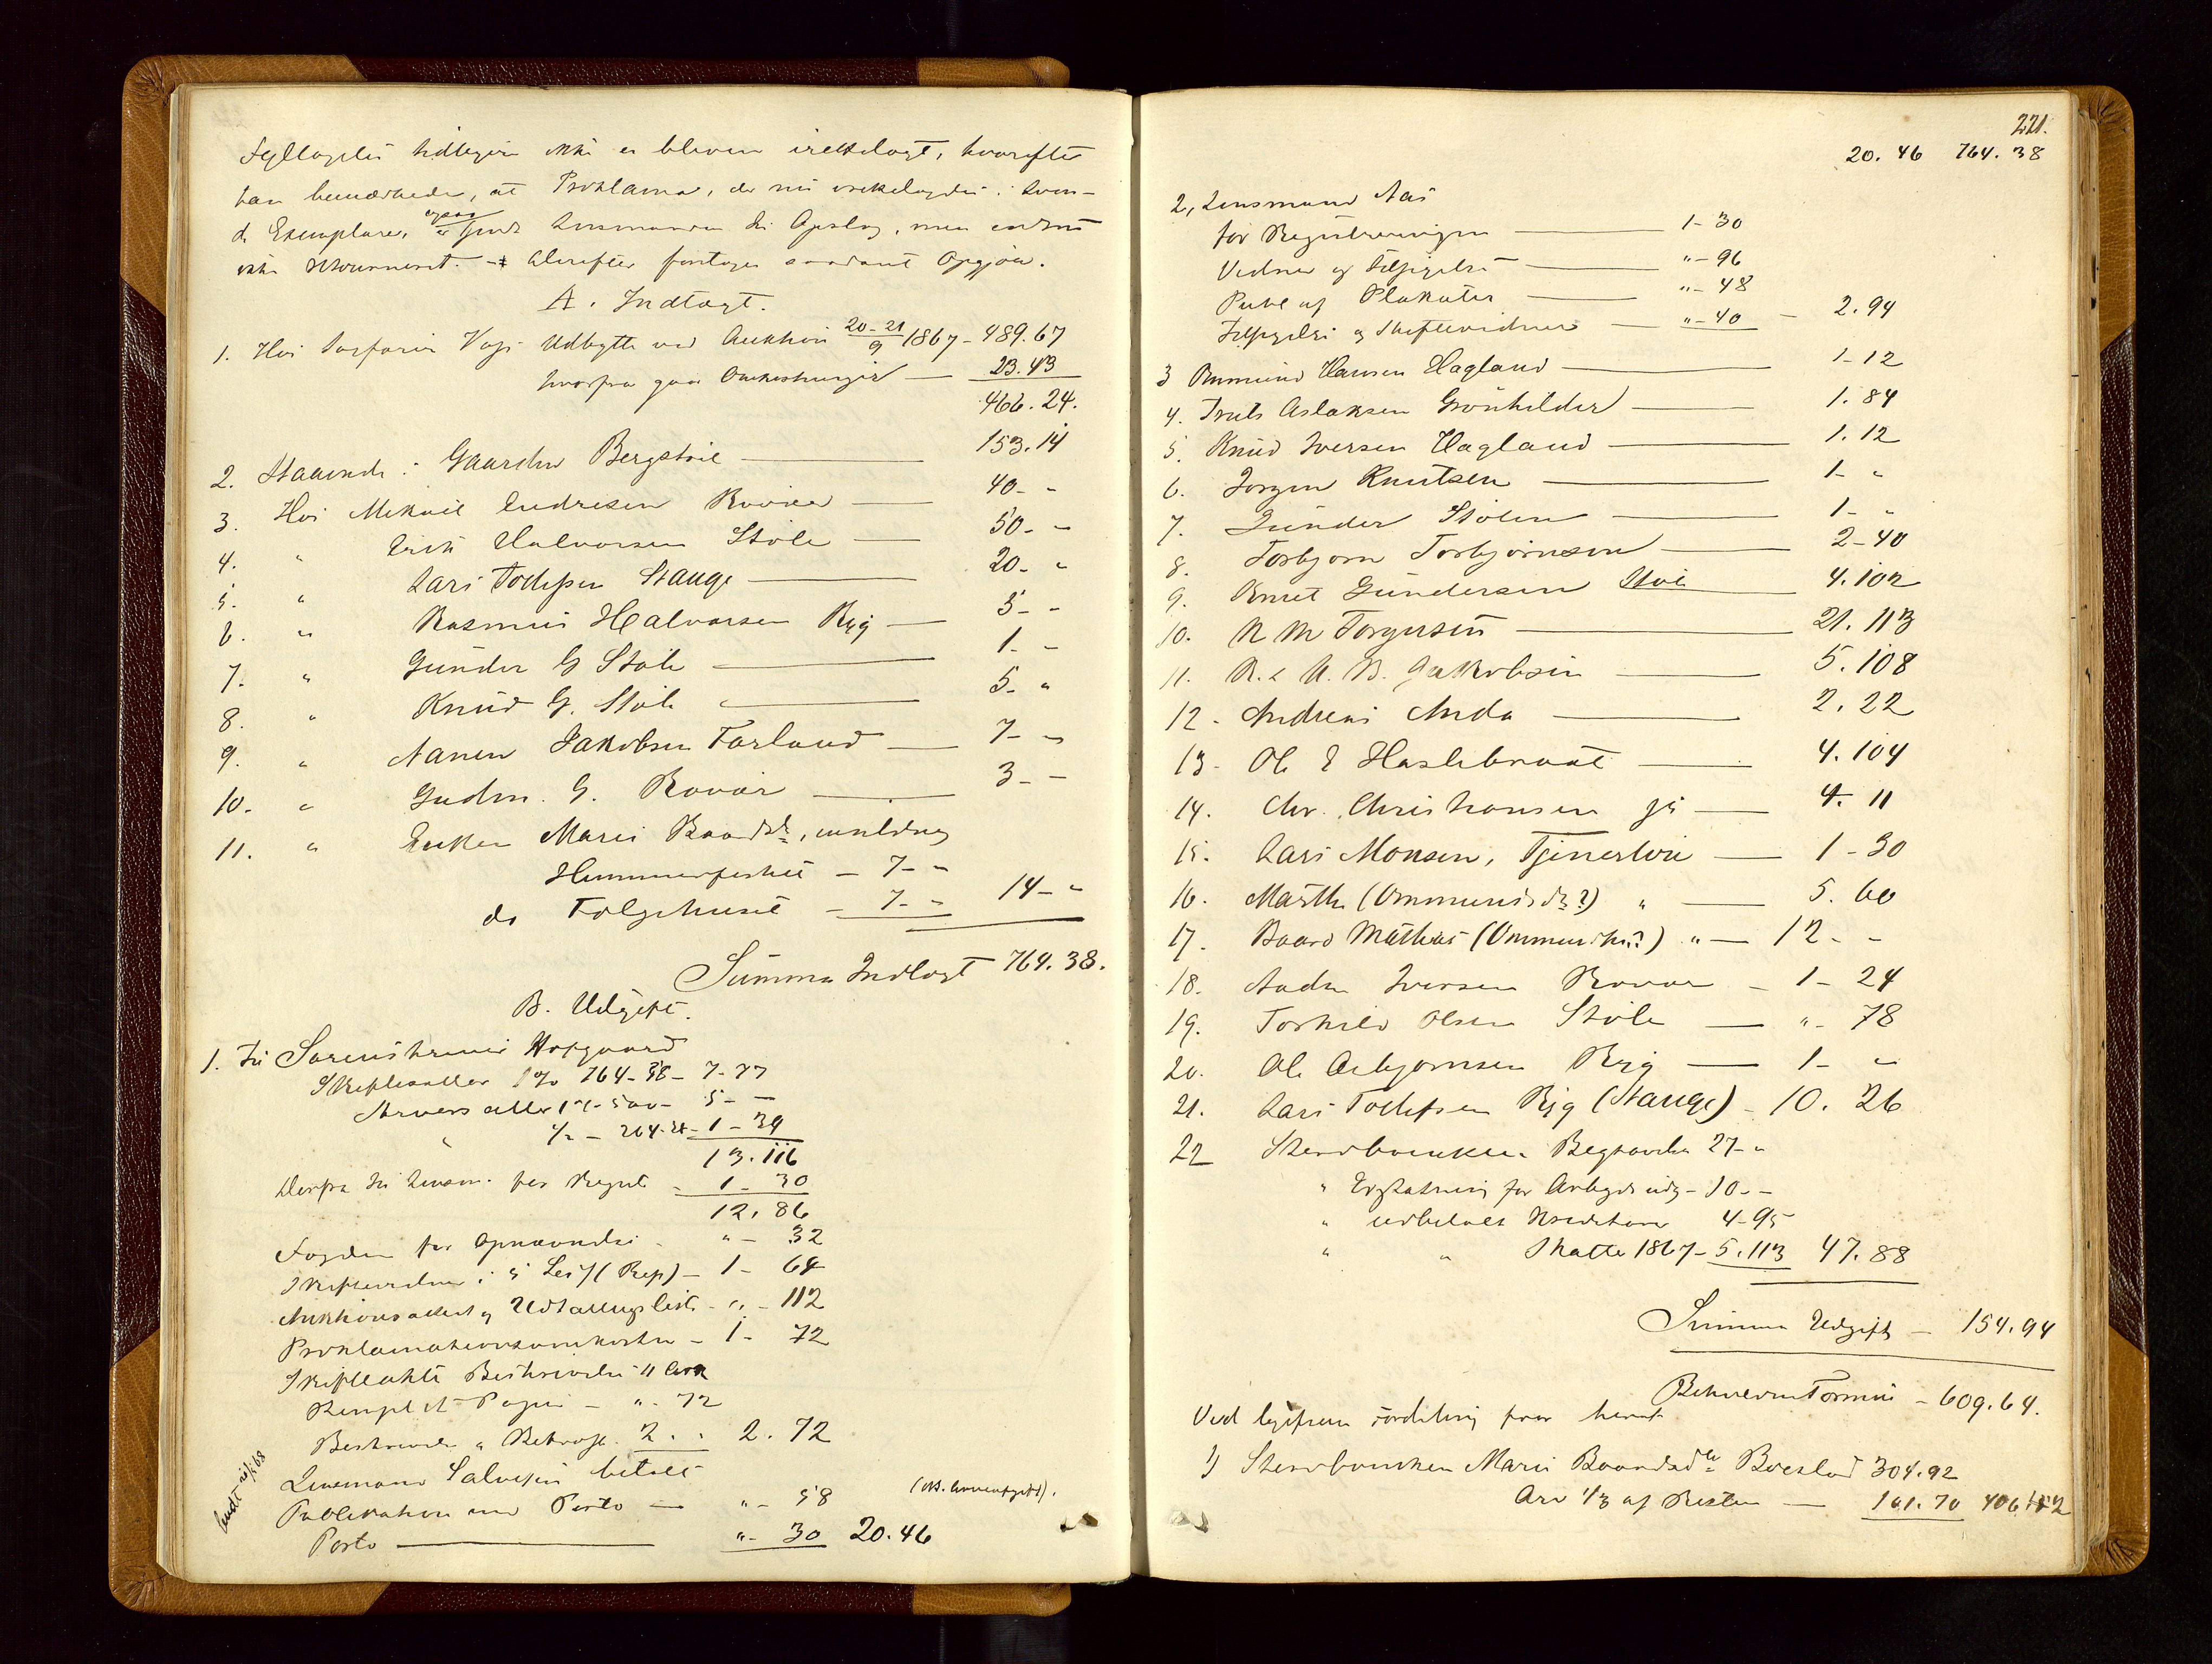 ikke er bleven irettelagt, hvorefter
han bemærkede, at Proklama, der nu irettelagdes i tven-
de Exemplarer, ogsaa er sendt Lensmanden til Opslag, men endnu
ikke retourneret. – Derefter foretoges saadant Opgjør.
A. Indtægt.
1. Hos Udbytte ved Auktion 20-21/9 1867 – 489.67
hvorfra gaar Omkostninger — 23.43
466.24.
2. Staaende i Gaarden Bergstøie — 153.14
3. Hos Mikael Endresen Rovær — 40- -
4. " Erik Halvorsen Støle — 50- -
5. " Lars Tollefsen Stange — 20- "
6. " Rasmus Halvorsen Ryg — 5- -
7. " Gunder G Støle — 1. -
8. " Knud G. Støle — 5- "
9. " Nanen Jakobsen Førland — 7- -
10. " Gudm. G. Rovær — 3- -
11. " Enken Marie Baardsdr.,
Hummerfisket – 7- -
do Følgehuset – 7- - 14- "
Summa Indtægt 764.38.
B. Udgift.
1. Til Sorenskriver Hofgaard
Skiftesaller 1% 764-38 – 7-77
1% - 500 – 5- –
" ½ – 264.38 – 1-39
13.116
Derfra til Lensm. for Regist. – 1-30
12.86
Fogden for Opnævnelse – "- 32
Skiftevidner i 5 Sess (Rep) – 1- 64
Auktionsattest og Udtallingsliste – " – 112
Proklamationsomkostn – 1- 72
Skifteakts Beskrivelse 11 Ark
Stemplet Papir – ". 72
Beskrivelse " 2. . 2. 72
Lensmand Salvesen betalt
Publikation med Porto — "- 58
Porto — "- 30 20.46
221.
20. 46 764. 38
2, Lensmand Aas
for Registreringen — 1-30
Vidner og Tilsigelse — "-96
Publ af Plakater — "-48
Tilsigelse og Skiftevidner — "-40 – 2.94
3 Ommund Hansen Hagland — 1-12
4. Truls Aslaksen Grønhilder — 1.84
5. Knud Iversen Hagland — 1.12
6. Jørgen Knutsen — 1- "
7. Gunder Stølen — 1- "
8. Torbjørn Torbjørnsen — 2-40
9. Knut Gundersen Støle — 4.102
10. N M Torgersen — 21.113
11. R. & A. B. Jakobsen — 5.108
12- Andreas Anda — 2.22
13- Ole E Haslebraat — 4.104
14. Chr. Christiansen — 4. 11
15. Lars Monsen, Tjenerløn — 1-30
16. Marthe (Ommundsdr?) " — 5. 60
17. Baard Mathias (Ommundsen?) " — 12- -
18. Anders Iversen Rovær – 1- 24
19. Torkild Olsen Støle — "- 78
20. Ole Asbjørnsen Ryg — 1- "
21. Lars Tollefsen Ryg (Stange) – 10. 26
22 Stervboenken Begravelse 27- "
" Erstatning for Arbeids udg – 10- -
" udbetalt Kreditorer 4-95
" " Skatter 1867 – 5.113 47.88
Summa Udgift – 154.94
Beholden Formue – 609.64.
Ved
1) Stervboenken Marie Baardsdtr Boeslod 304.92
Arv 1/3 af Resten — 101.70